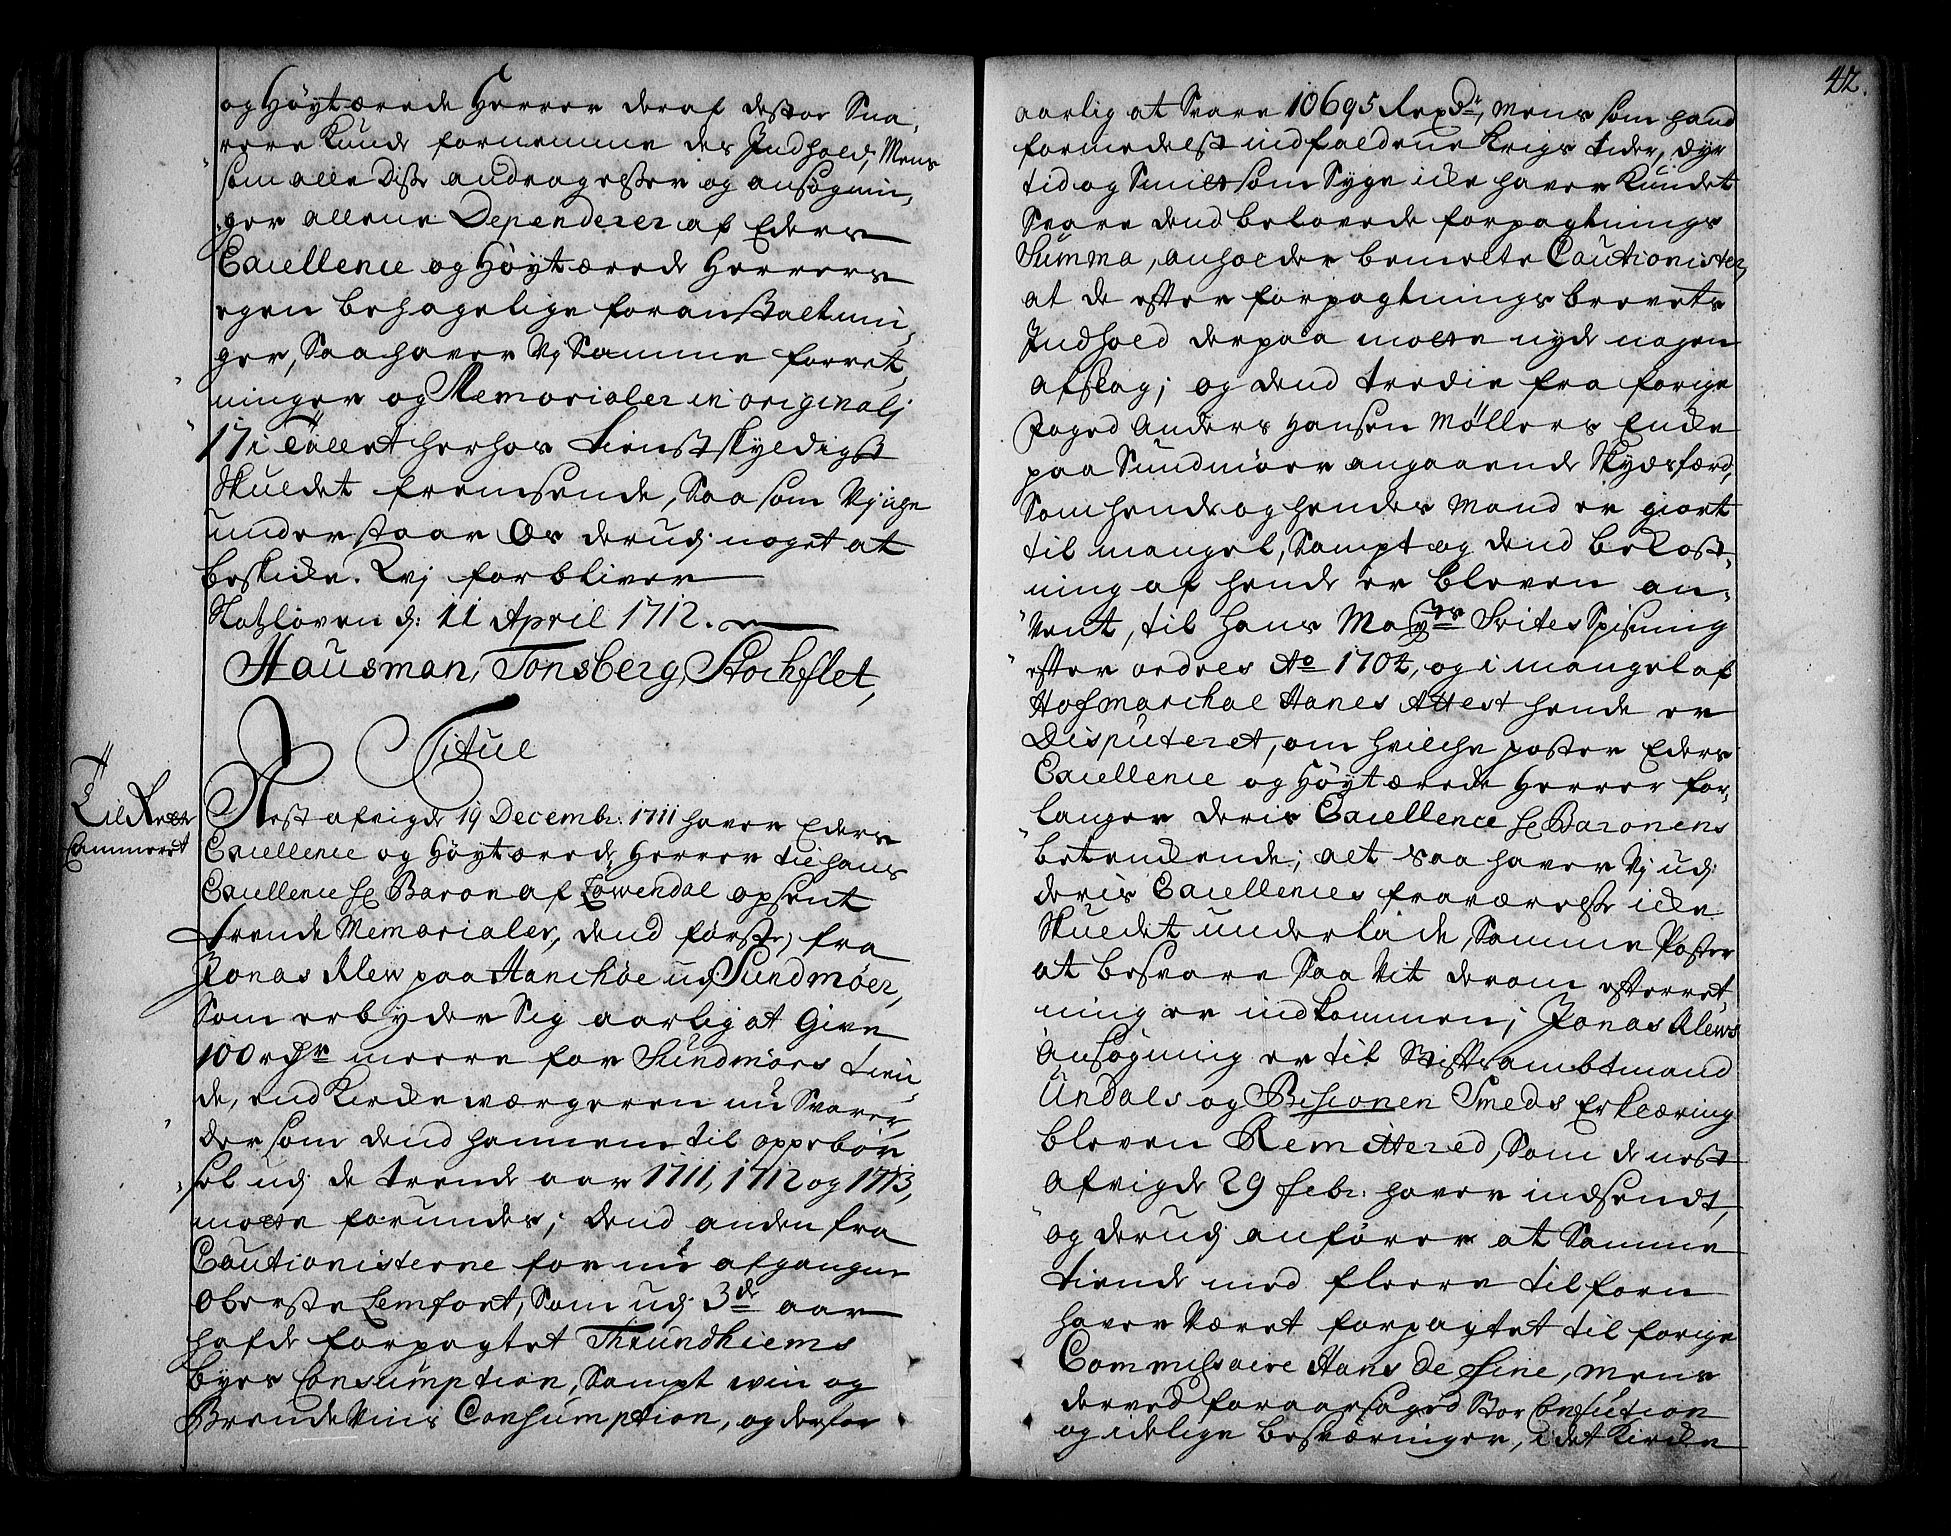 og Høytærede Herrer deraf destoe Sna,
rere Kunde fornemme des Indhold; Mens
som alle diße andragelser og ansøgnin,
ger allene Dependerer af Eders
Excellence og Høytærede Herrers
egen behagelige foranstaltnin,
ger, Saa haver Vj Samme forret,
ninger og Memorialer in originalj
17 i Tallet herhos tienstskyldigst
Skuldet fremsende, Saa som Vj iche
understaar Os derudj noget at
beskicke. Wj forbliver
Slotzloven d: 11 April 1712.
Hausman, Tonsberg, Stockflet,
Titul
Til Rente
Cammeret
Nest afvigte 19 Decembr: 1711 haver Eders
Excellence og Høytærede Herrer til hans
Excellence H: Baron af Løwendal opsent
trende Memorialer, dend første, fra
Jonas Alew paa Hanchøe udj Sundmøer,
Som erbyder Sig aarlig at Give
100 rdr meere for Sundmørs tien
de, end Kirckeværgeren nu Svarer
der som dend hannem til oppebør
sel udj de trende aar 1711, 1712 og 1713,
motte forundes; dend anden fra
Cautionisterne for nu afgangne
Oberste Lemfort, Som udj 3de aar
hafde forpagtet Thrundhiems
byes Consumption, Sampt viin og
Brendeviins Consumption, og derfor
42.
aarlig at Svare 10695 Rexdr, Mens som hand
formedelst indfaldene Krigs tider, dyr
tid og Smitsom Syge icke haver Kundet
Svare dend belovede forpagtnings
Summa, anholder bemelte Cautionister,
at de efter forpagtnings brevets
Indhold derpaa motte nyde nogen
afslag; og dend tredie fra forige
Foged Anders Hansen Møllers Encke
paa Sundmøer angaaende Skydsferd,
Som hende og hendes Mand er giort
til mangel, Sampt og dend bekost,
ning af hende er bleven an,
vent, til Hans Mayts Svites Spisning
efter ordres Ao 1704, og i mangel af
Hofmarchal Hanes Attest hende er
Disputeret, om hvilche poster Eders
Excellence og Høytærede Herrer for,
langer deris Excellence H: Baronens
betenckende; alt saa haver Vj udj
deris Excellences fraværelse icke
Skuldet underlade, Samme Poster
at besvare Saa vit derom efterret,
ning er indkommen; Jonas Alews
ansøgning er til Stiftsambtmand
Undals og Bispen Smeds Erklæring
bleven Remitteret, Som de nest
afvigte 29 febr: haver indsendt,
og derudj anfører at Samme
tiende med fleere tilforn
haver været forpagtet til forige
Commissaire Hans de fine, mens
derved foraarsaget Stor Confution
og idelige besværinger, i det Kircke